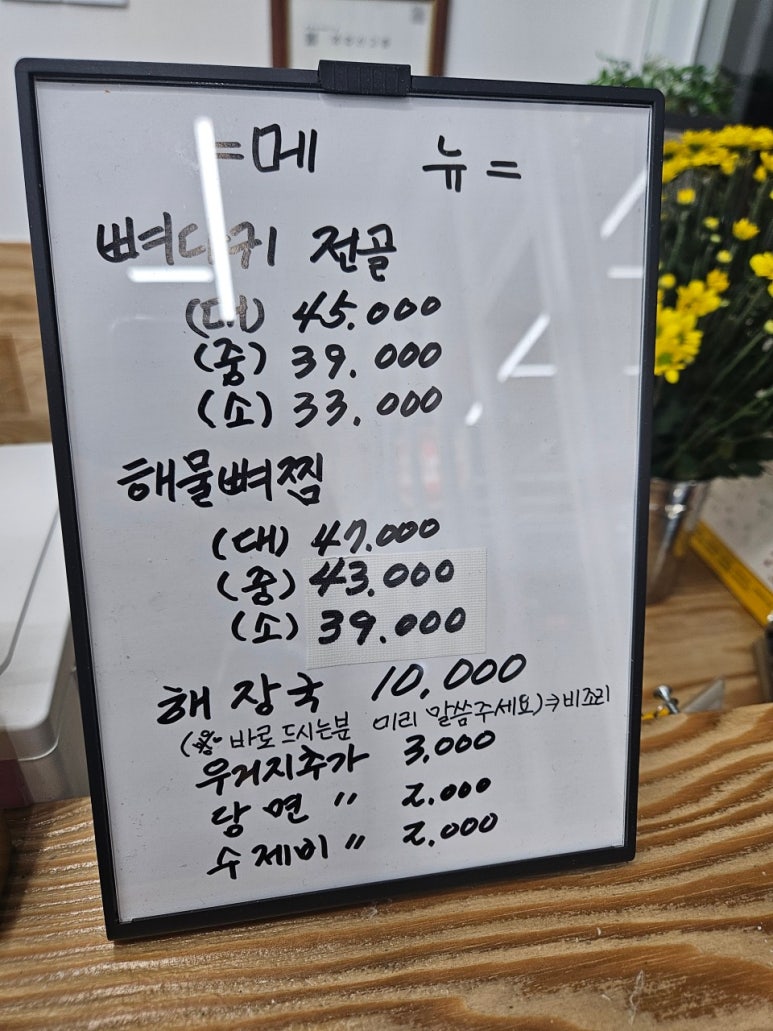 =메 뉴=
뼈다귀 전골
(대) 45.000
(중) 39.000
(소) 33.000
해물뼈찜
(대) 47.000
(중) 43.000
(소) 39.000
해장국 10,000
(※ 바로 드시는분 미리 말씀주세요)⇒비조리
우거지추가 3,000
당면 〃 2.000
수제비 〃 2,000